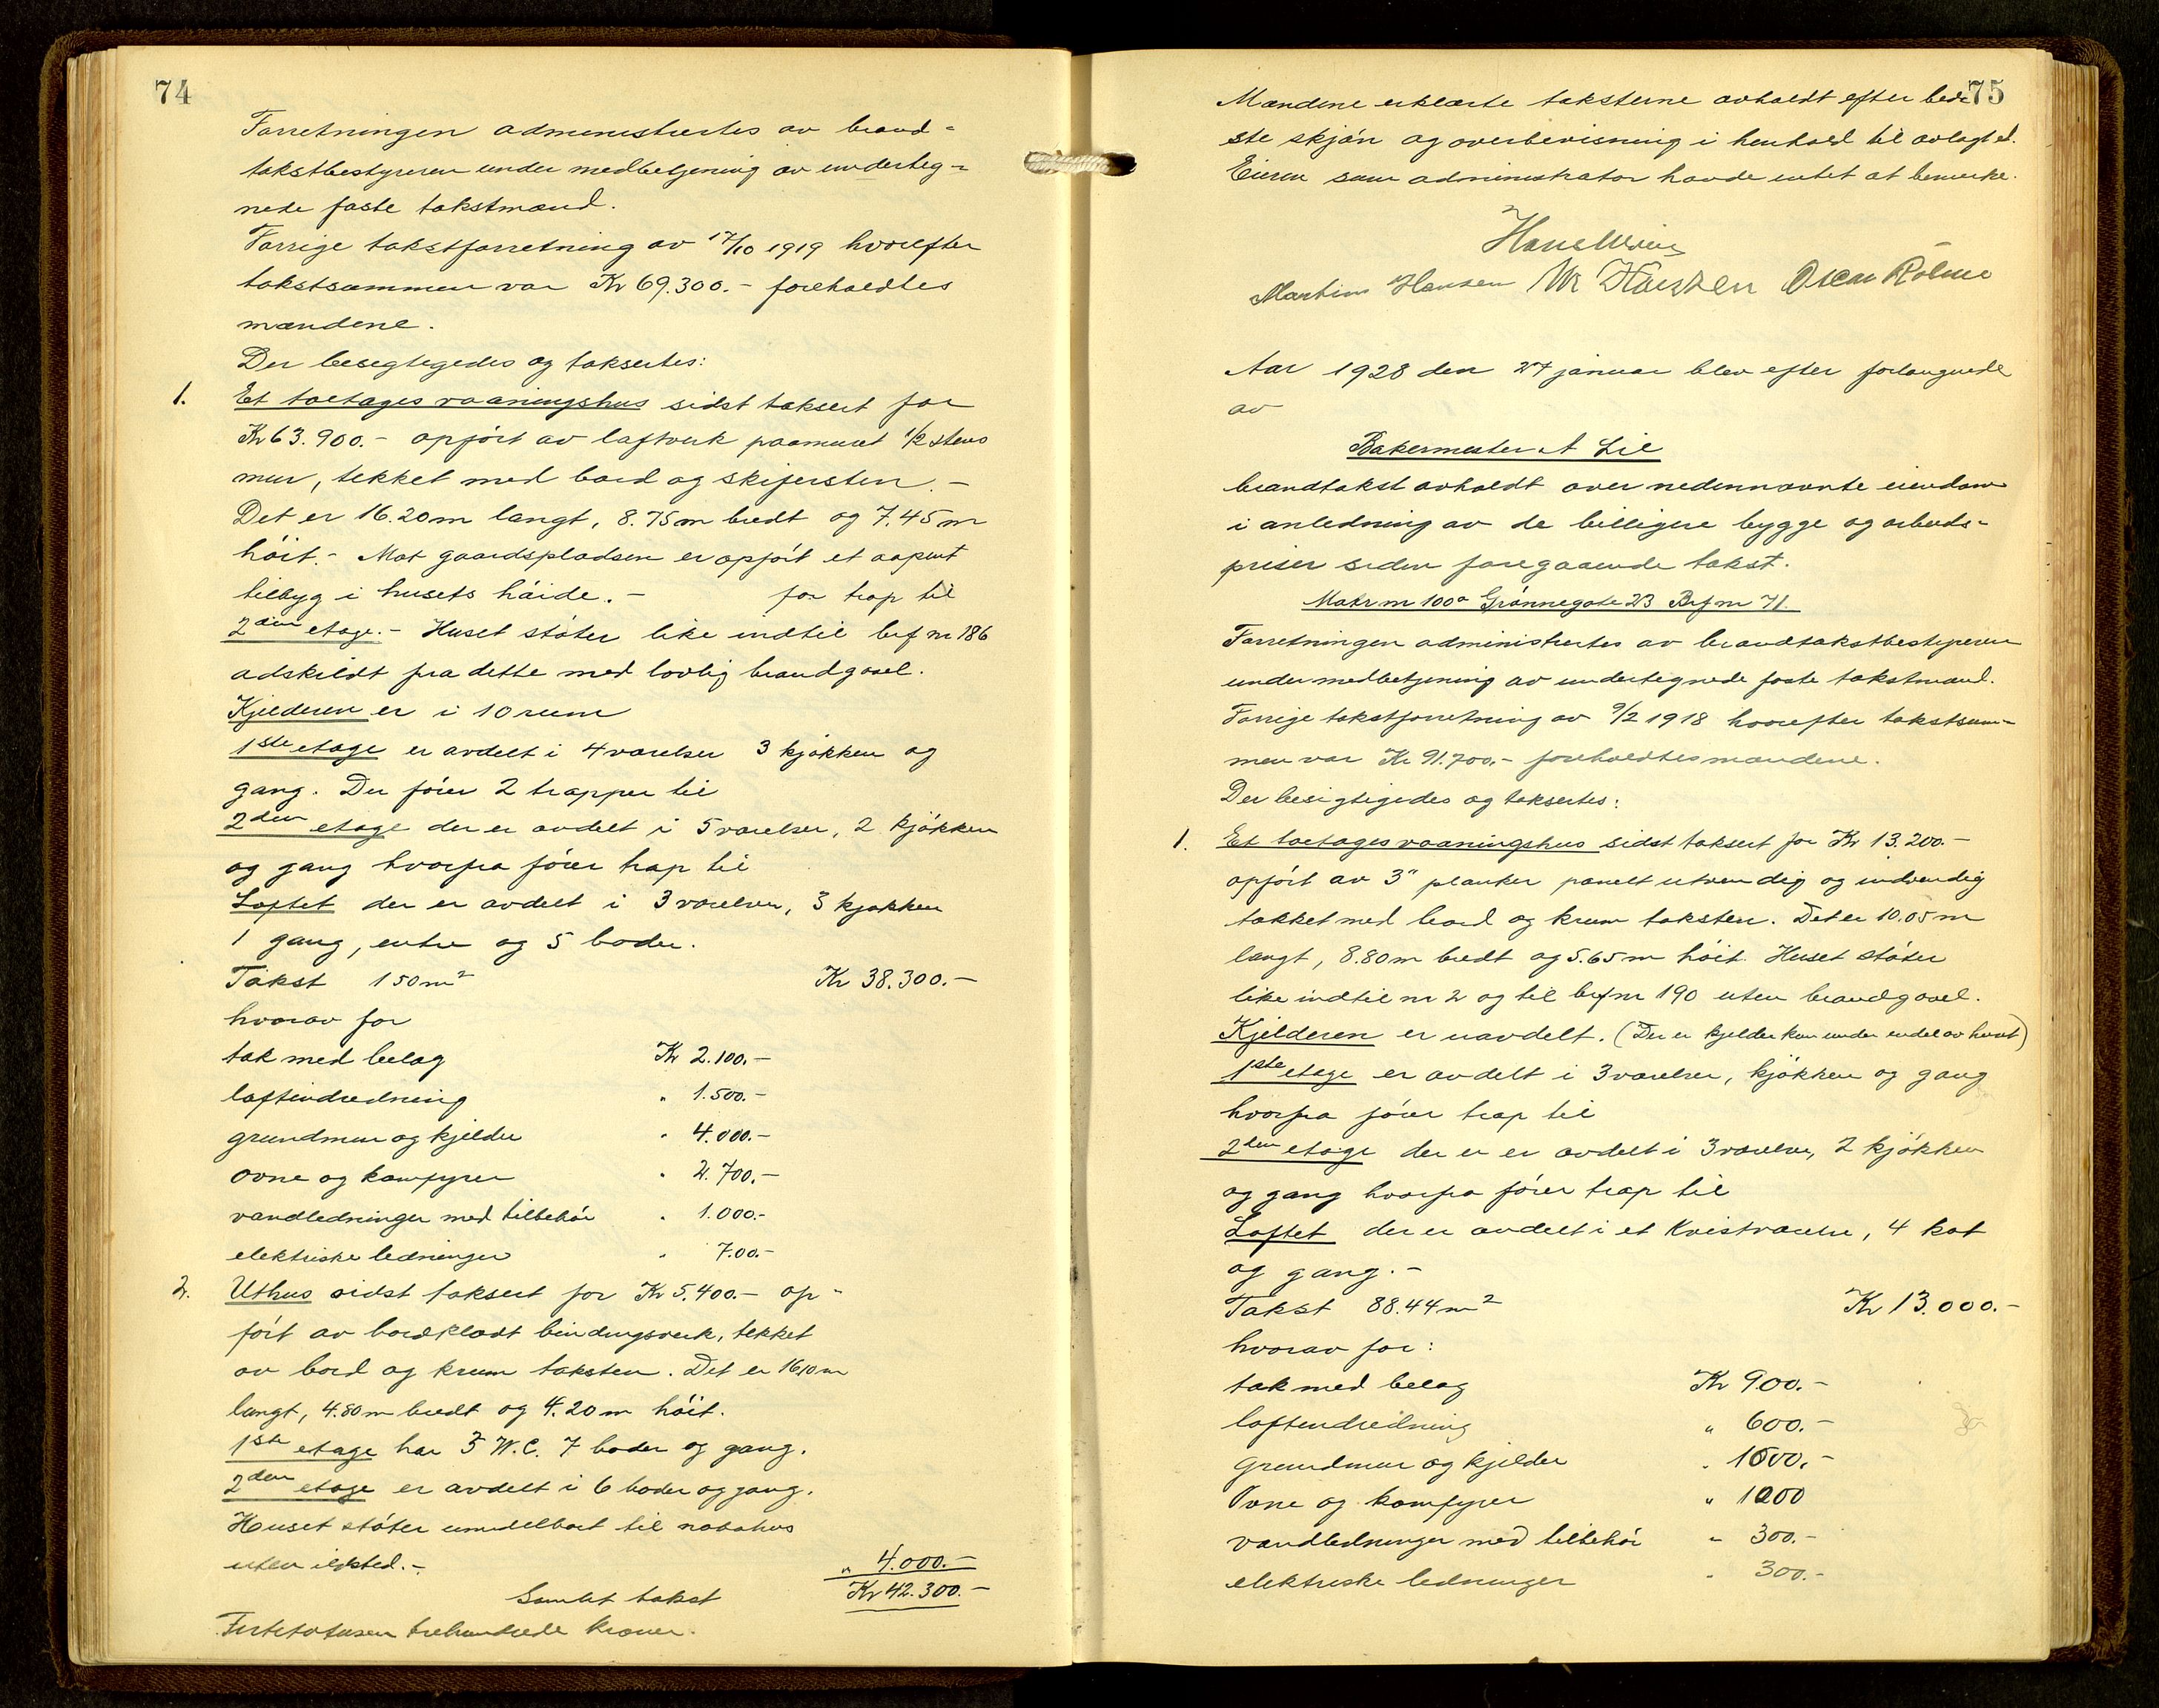 74
Forretningen administrertes av brand-
takstbestyreren under medbetjening av underteg-
nede faste takstmænd.
Forrige takstforretning av 17/10 1919 hvorefter
takstsummen var Kr 69.300.- foreholdtes
mændene.
Der besigtigedes og taksertes:
1. Et toetages vaaningshus sidst taksert for
Kr 63.900.- opført av laftverk paamuret 1/2 stens
mur, tekket med bord og skifersten.-
Det er 16.20m langt, 8.75m bredt og 7.45m
höit.- Mot gaardspladsen er opfört et aapent
tilbyg i husets höide.- for trap til
2den etage.- Huset stöter like indtil brf nr 186
adskildt fra dette med lovlig brandgavel.
Kjelderen er i 10 rum
1ste etage er avdelt i 4 værelser 3 kjökken og
gang. Der förer 2 trapper til
2den etage der er avdelt i 5 værelser, 2 kjökken
og gang hvorfra förer trap til
Loftet der er avdelt i 3 værelser, 3 kjøkken
1 gang, entre og 5 boder.
Takst 150m2 Kr 38.300.-
hvorav for
tak med belæg Kr 2.100.-
loftindredning " 1.500.-
grundmur og kjelder " 4.000.-
ovne og komfyrer " 2.700.-
vandledninger med tilbehör " 1.000.-
elektriske ledninger " 700.-
2. Uthus sidst taksert for Kr 5.400.- op-
fört av bordklædt bindingsverk, tekket
av bord og krum taksten. Det er 16,10m
langt, 4.80m bredt og 4.20m höit.
1ste etage har 3 W.C. 7 boder og gang.
2den etage er avdelt i 6 boder og gang.
Huset stöter umidelbart til nabohus
uten ildsted.- " 4.000.-
Samlet takst Kr 42.300.-
Firtitotusen trehundrede kroner.
75
Mændene erklærte taksterne avholdt efter bed-
ste skjön og overbevisning i henhold til avlagt ed.
Eieren som administrator havde intet at bemerke.
Martin Hansen Oscar Holme
Aar 1928 den 27 januar blev efter forlangende
av
Bakermester A Lie
brandtakst avholdt over nedennævnte eiendom
i anledning av de billigere bygge og arbeids-
priser siden foregaaende takst.
Matr nr 100a Grönnegate 23 Brf nr 71.
Forretningen administrertes av brandtakstbestyreren
under medbetjening av undertegnede faste takstmænd.
Forrige takstforretning av 9/2 1918 hvorefter takstsum-
men var Kr 91.700.- foreholdtes mændene.
Der besigtigedes og taksertes:
1. Et toetages vaaningshus sidst taksert for Kr 13.200.-
opfört av 3" planker panelt utvendig og indvendig
tækket med bord og krum taksten. Det er 10.05m
langt, 8.80m bredt og 5.65m höit. Huset stöter
like indtil nr 2 og til brf nr 190 uten brandgavel.
Kjelderen er uavdelt. (Der er kjelder kun under endel av huset)
1ste etage er avdelt i 3 værelser, kjökken og gang
hvorfra förer trap til
2den etage der er er avdelt i 3 værelser, 2 kjökken
og gang hvorfra förer trap til
Loftet der er avdelt i et Kvistværelse, 4 kot
og gang.-
Takst 88.44m2 Kr 13.000.-
hvorav for:
tak med belæg Kr 900.-
loftindredning " 600.-
Grundmur og kjelder " 1500.-
Ovne og komfyrer " 1000
vandledninger med tilbehör " 300.-
elektriske ledninger " 300.-